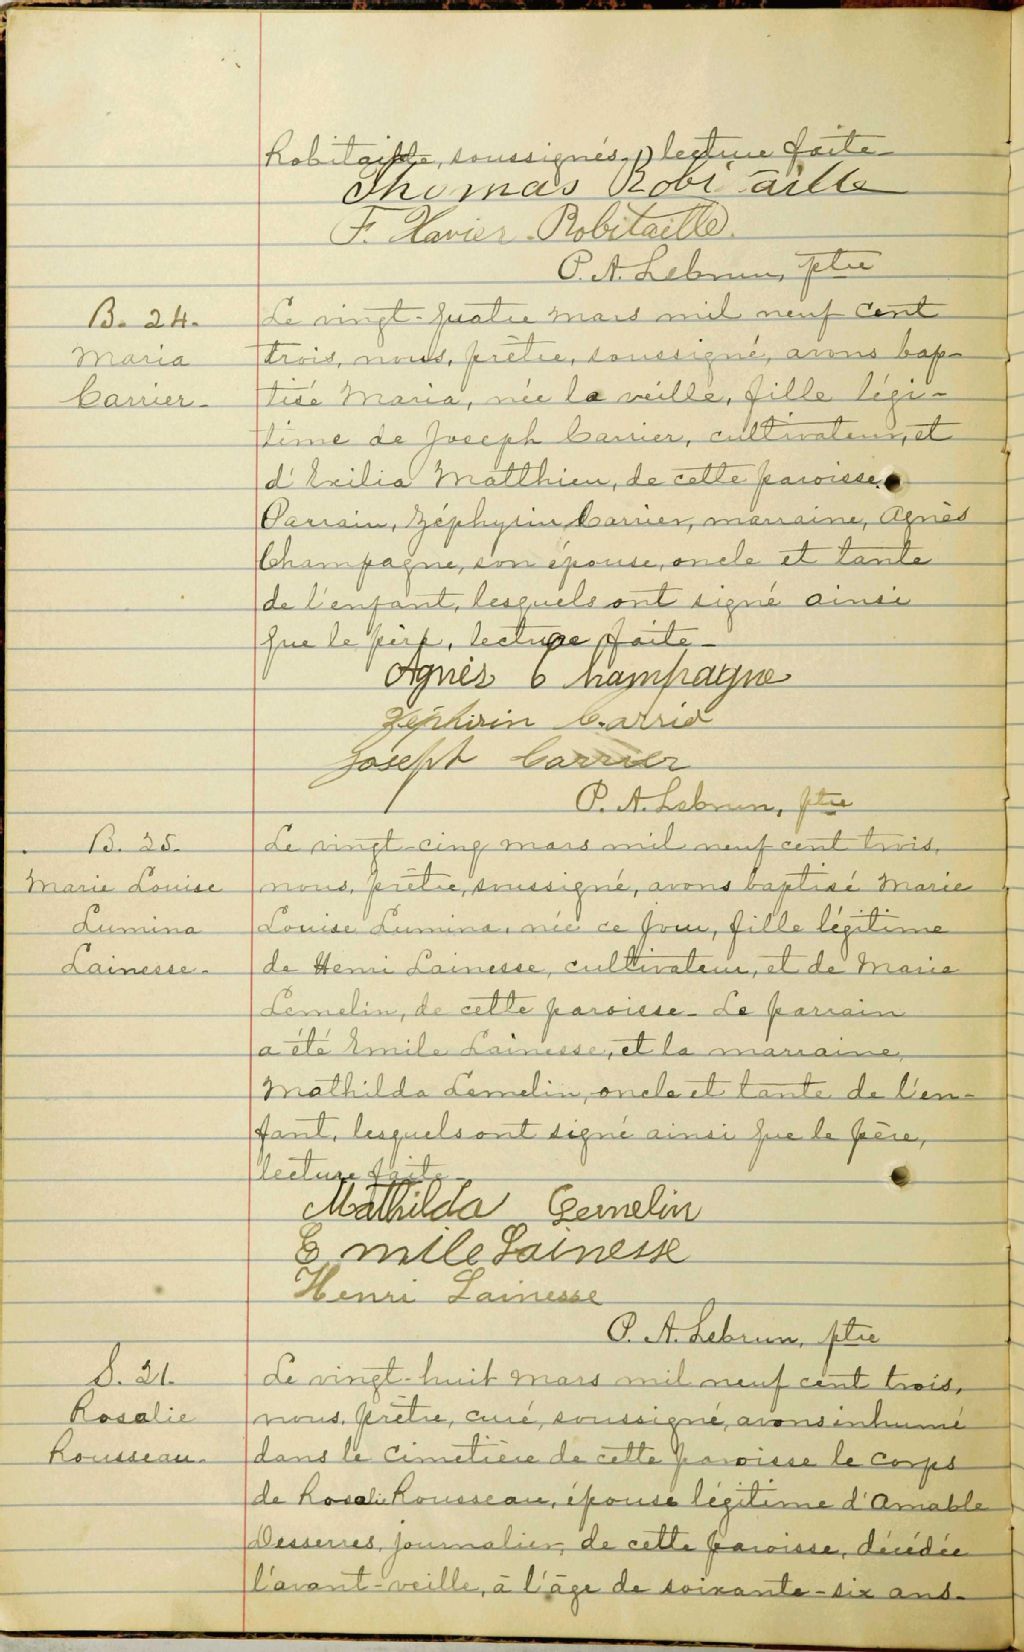 Robitaille, soussignés, lecture faite.
Thomas Robitaille
F. Xavier Robitaille.
P. A. Lebrun, ptre
B. 24.
Maria
Carrier.
Le vingt-quatre mars mil neuf cent
trois, nous, prêtre, soussigné, avons bap-
tisé Maria, née la veille, fille légi-
time de Joseph Carrier, cultivateur, et
d'Exilia Matthieu, de cette paroisse.
Parrain, Zéphyrin Carrier, marraine, Agnès
Champagne, son épouse, oncle et tante
de l'enfant, lesquels ont signé ainsi
que le père, lecture faite.
Agnès Champagne
Zéphirin Carrier
Joseph Carrier
P. A. Lebrun, ptre
B. 25.
Marie Louise
Lumina
Lainesse.
Le vingt-cinq mars mil neuf cent trois,
nous, prêtre, soussigné, avons baptisé Marie
Louise Lumina, née ce jour, fille légitime
de Henri Lainesse, cultivateur, et de Marie
Lemelin, de cette paroisse. Le parrain
a été Emile Lainesse, et la marraine,
Mathilda Lemelin, oncle et tante de l'en-
fant, lesquels ont signé ainsi que le père,
lecture faite.
Mathilda Lemelin
Emile Lainesse
Henri Lainesse
P. A. Lebrun, ptre
S. 21.
Rosalie
Rousseau.
Le vingt-huit mars mil neuf cent trois,
nous, prêtre, curé, soussigné, avons inhumé
dans le cimetière de cette paroisse le corps
de Rosalie Rousseau, épouse légitime d'Amable
Desserres, journalier, de cette paroisse, décédée
l'avant-veille, à l'âge de soixante-six ans.